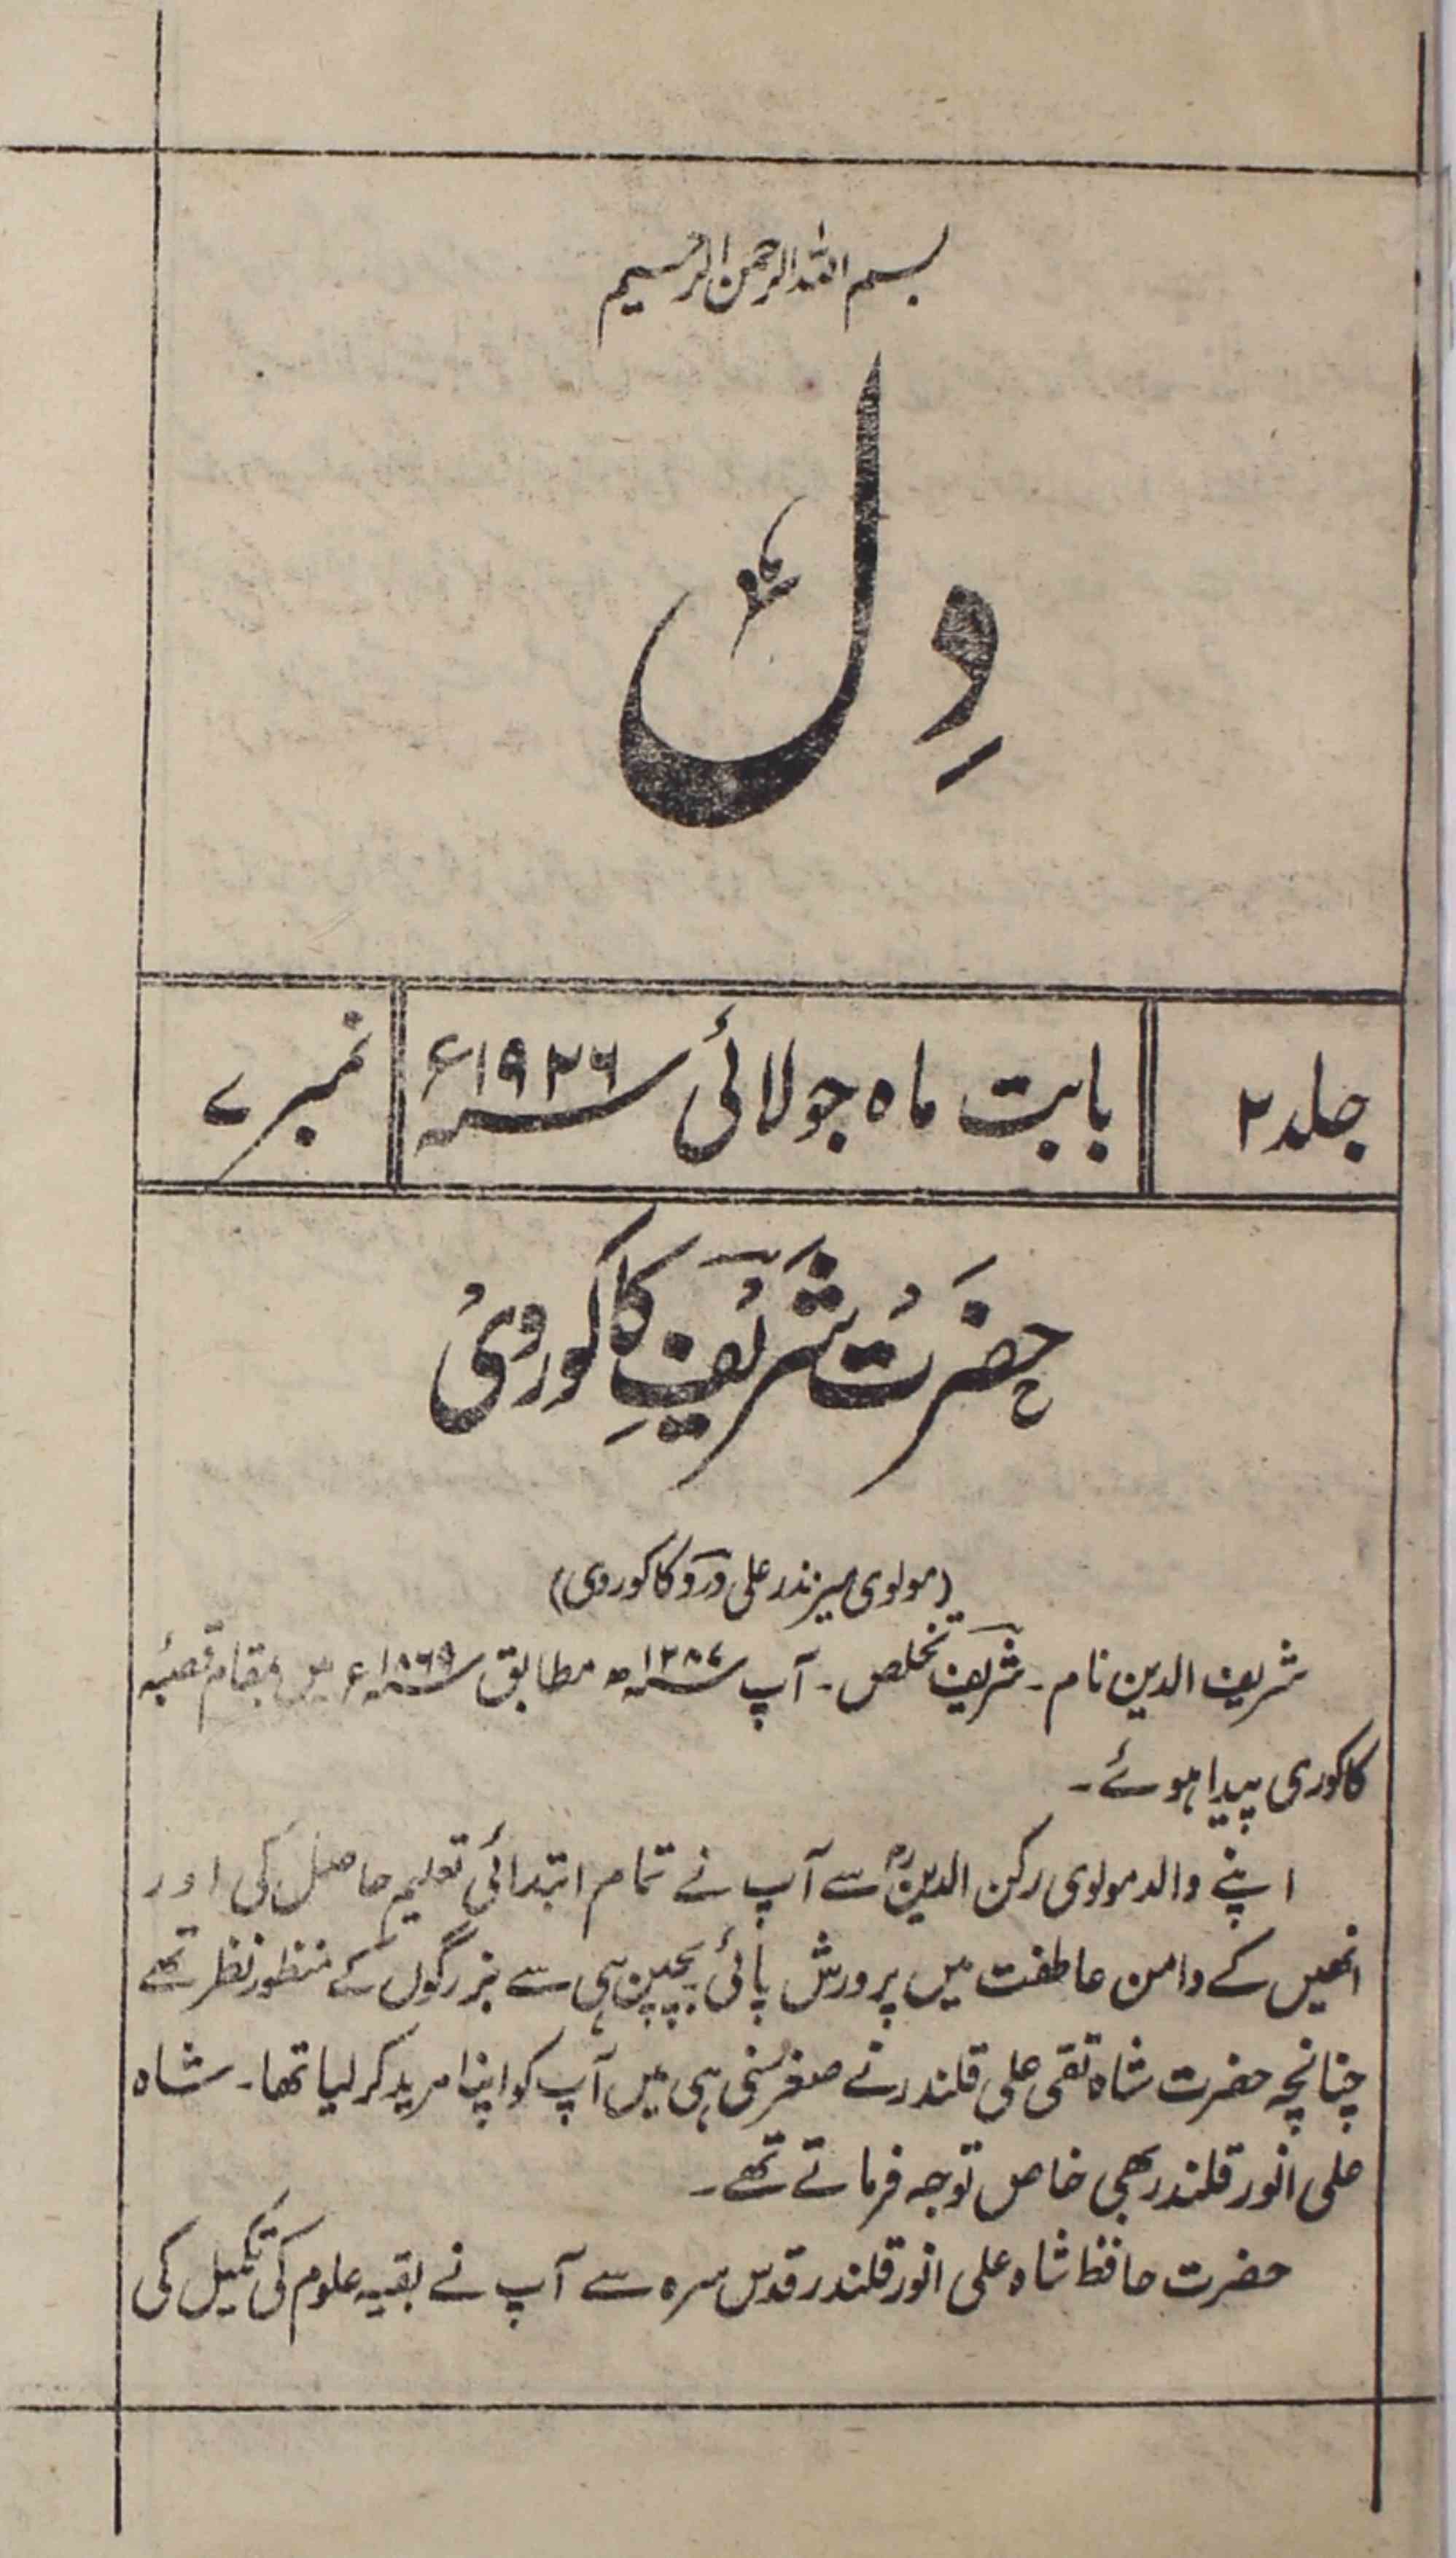 بسم اللہ الرحمن الرحیم
دِل
جلد ۲
بابت ماہ جولائی سنہ ۱۹۲۶ء
نمبر ۷
حضرت شریف کاکوروی
(مولوی میر نذر علی درد کاکوروی)
شریف الدین نام۔ شریف تخلص۔ آپ سنہ ۱۲۸۶ھ مطابق سنہ ۱۸۶۹ء میں بمقام قصبۂ
کاکوری پیدا ہوئے۔
اپنے والد مولوی رکن الدینؒ سے آپ نے تمام ابتدائی تعلیم حاصل کی اور
انھیں کے دامن عاطفت میں پرورش پائی بچپن ہی سے بزرگوں کے منظور نظر تھے
چنانچہ حضرت شاہ تقی علی قلندر نے صغر سنی ہی میں آپ کو اپنا مرید کر لیا تھا۔ شاہ
علی انور قلندر بھی خاص توجہ فرماتے تھے۔
حضرت حافظ شاہ علی انور قلندر قدس سرہ سے آپ نے بقیہ علوم کی تکمیل کی